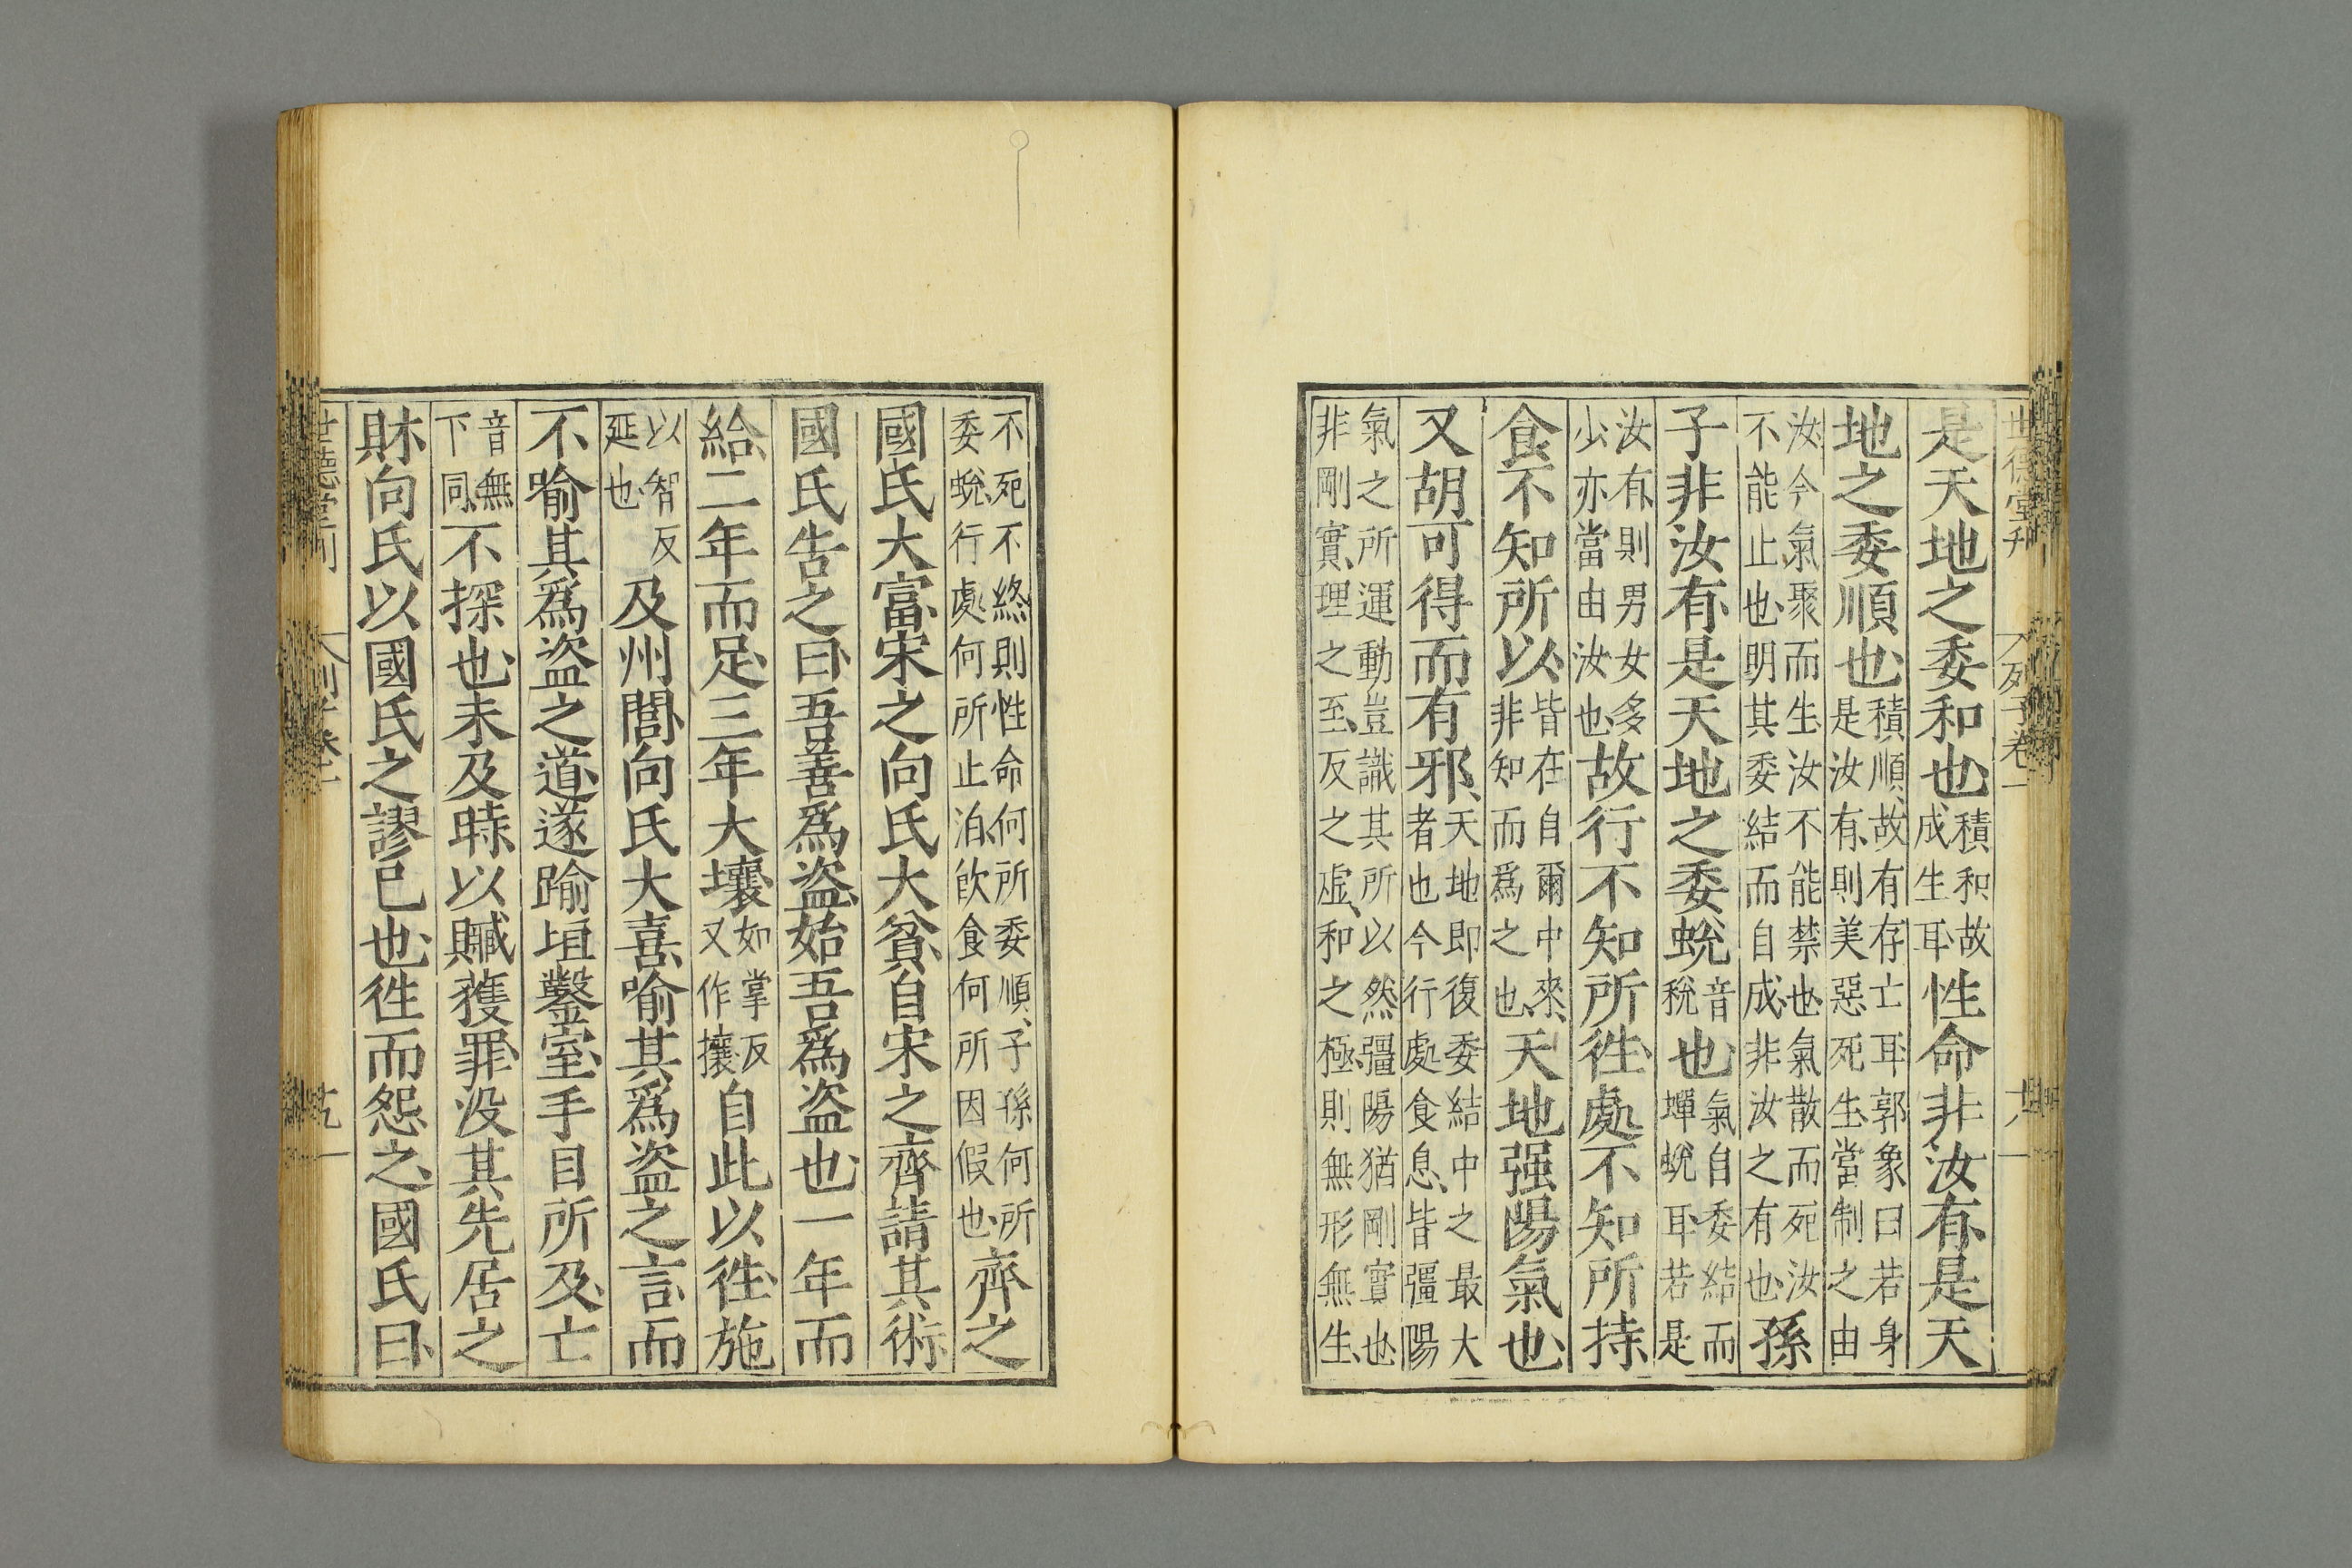 世德堂刋 列子卷一
是天地之委和也積和故成生耳性命非汝有是天
地之委順也積順故有存亡耳郭象曰若身是汝有則美惡死生當制之由
汝今氣聚而生汝不能禁也氣散而死汝不能止也明其委結而自成非汝之有也孫
子非汝有是天地之委蛻音稅也氣自委結而蟬蛻耳若是
汝有則男女多少亦當由汝也故行不知所徃處不知所持
食不知所以皆在自爾中來非知而爲之也天地强陽氣也
又胡可得而有邪天地即復委結中之最大者也今行處食息皆彊陽
氣之所運動豈識其所以然彊陽猶剛實也非剛實理之至反之虛和之極則無形無生
不死不終則性命何所委順子孫何所委蛻行處何所止泊飲食何所因假也齊之
國氏大富宋之向氏大貧自宋之齊請其術
國氏告之曰吾善爲盜始吾爲盜也一年而
給二年而足三年大壤如掌反又作攘自此以徃施
以智反延也及州閭向氏大喜喻其爲盜之言而
不喻其爲盜之道遂踰垣鑿室手目所及亡
音無下同不探也未及時以贓獲罪没其先居之
財向氏以國氏之謬已也徃而怨之國氏曰